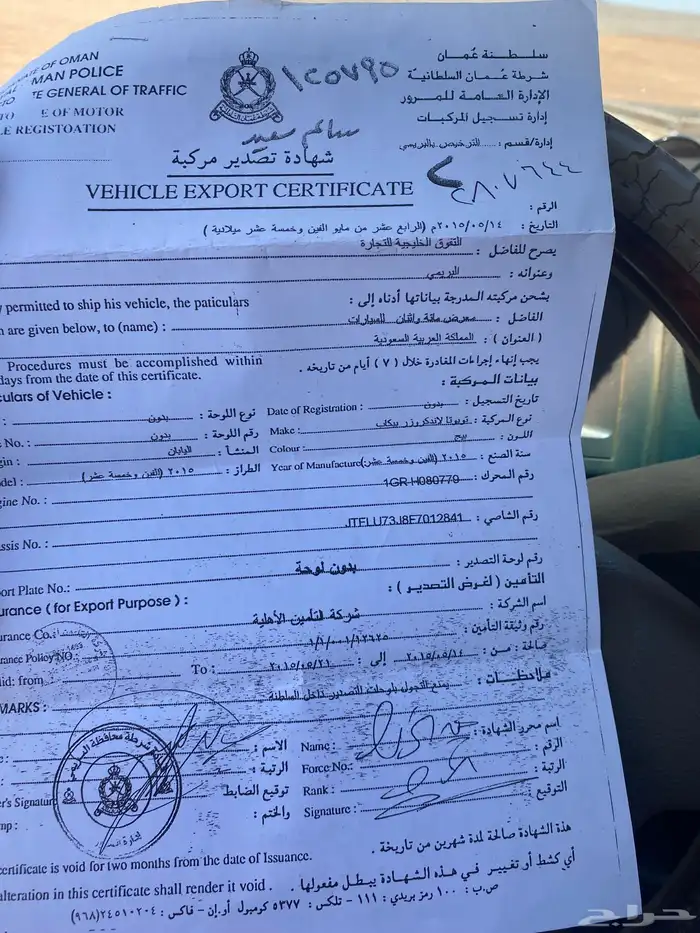 OF OMAN
MAN POLICE
TE GENERAL OF TRAFFIC
E OF MOTOR
LE REGISTOATION
سلطنة عُمان
شرطة عُمان السلطانية
الإدارة العامة للمرور
إدارة تسجيل المركبات
إدارة/قسم : الترخيص بالبريمي
١٢٥٧٩٥
سالم سعيد
شهادة تصدير مركبة
VEHICLE EXPORT CERTIFICATE
الرقم :
التاريخ : ٢٠١٥/٠٥/١٤م (الرابع عشر من مايو الفين وخمسة عشر ميلادية )
يصرح للفاضل : التفوق الخليجية للتجارة
وعنوانه : البريمي
y permitted to ship his vehicle, the paticulars
بشحن مركبته المدرجة بياناتها أدناه إلى :
h are given below, to (name) :
الفاضل : معرض مائة واثنان للسيارات
( العنوان ) : المملكة العربية السعودية
Procedures must be accomplished within
days from the date of this certificate.
يجب إنهاء إجراءات المغادرة خلال ( ٧ ) أيام من تاريخه .
culars of Vehicle :
بيانات المركبة :
نوع اللوحة : بدون
Date of Registration :
تاريخ التسجيل : بدون
e No. :
رقم اللوحة : بدون
Make :
نوع المركبة : تويوتا لاندكروزر بيكاب
gin :
المنشأ : اليابان
Colour :
اللون : بيج
odel :
الطراز : ٢٠١٥ (الفين وخمسة عشر )
Year of Manufacture
سنة الصنع : ٢٠١٥ (الفين وخمسة عشر)
gine No. :
رقم المحرك : 1GR-H080770
assis No. :
رقم الشاصي : JTELU73J8F7012841
ort Plate No.:
رقم لوحة التصدير : بدون لوحة
urance ( for Export Purpose ) :
التأمين ( لغرض التصدير ) :
urance Co.:
اسم الشركة : شركة التأمين الأهلية
rance Policy NO.
رقم وثيقة التأمين : ١/١/٠٠١/١٢٦٢٥
lid: from
To :
صالحة : من : ٢٠١٥/٠٥/١٤ إلى : ٢٠١٥/٠٥/٢١
MARKS :
ملاحظات : يمنع التجول بلوحات التصدير داخل السلطنة
الاسم :
Name :
اسم محرر الشهادة :
الرتبة :
Force No.:
الرقم :
er's Signatur
توقيع الضابط
Rank :
الرتبة :
mp :
والختم :
Signature :
التوقيع :
شرطة محافظة البريمي
certificate is void for two months from the date of Issuance.
هذه الشهادة صالحة لمدة شهرين من تاريخة .
alteration in this certificate shall render it void .
أي كشط أو تغيير في هذه الشهادة يبطل مفعولها .
ص.ب : ١٠٠ رمز بريدي : ١١١ - تلكس : ٥٣٧٧ كومبول أو.إن - فاكس : ٢٤٥١٠٢٠٤(٩٦٨)
حراج